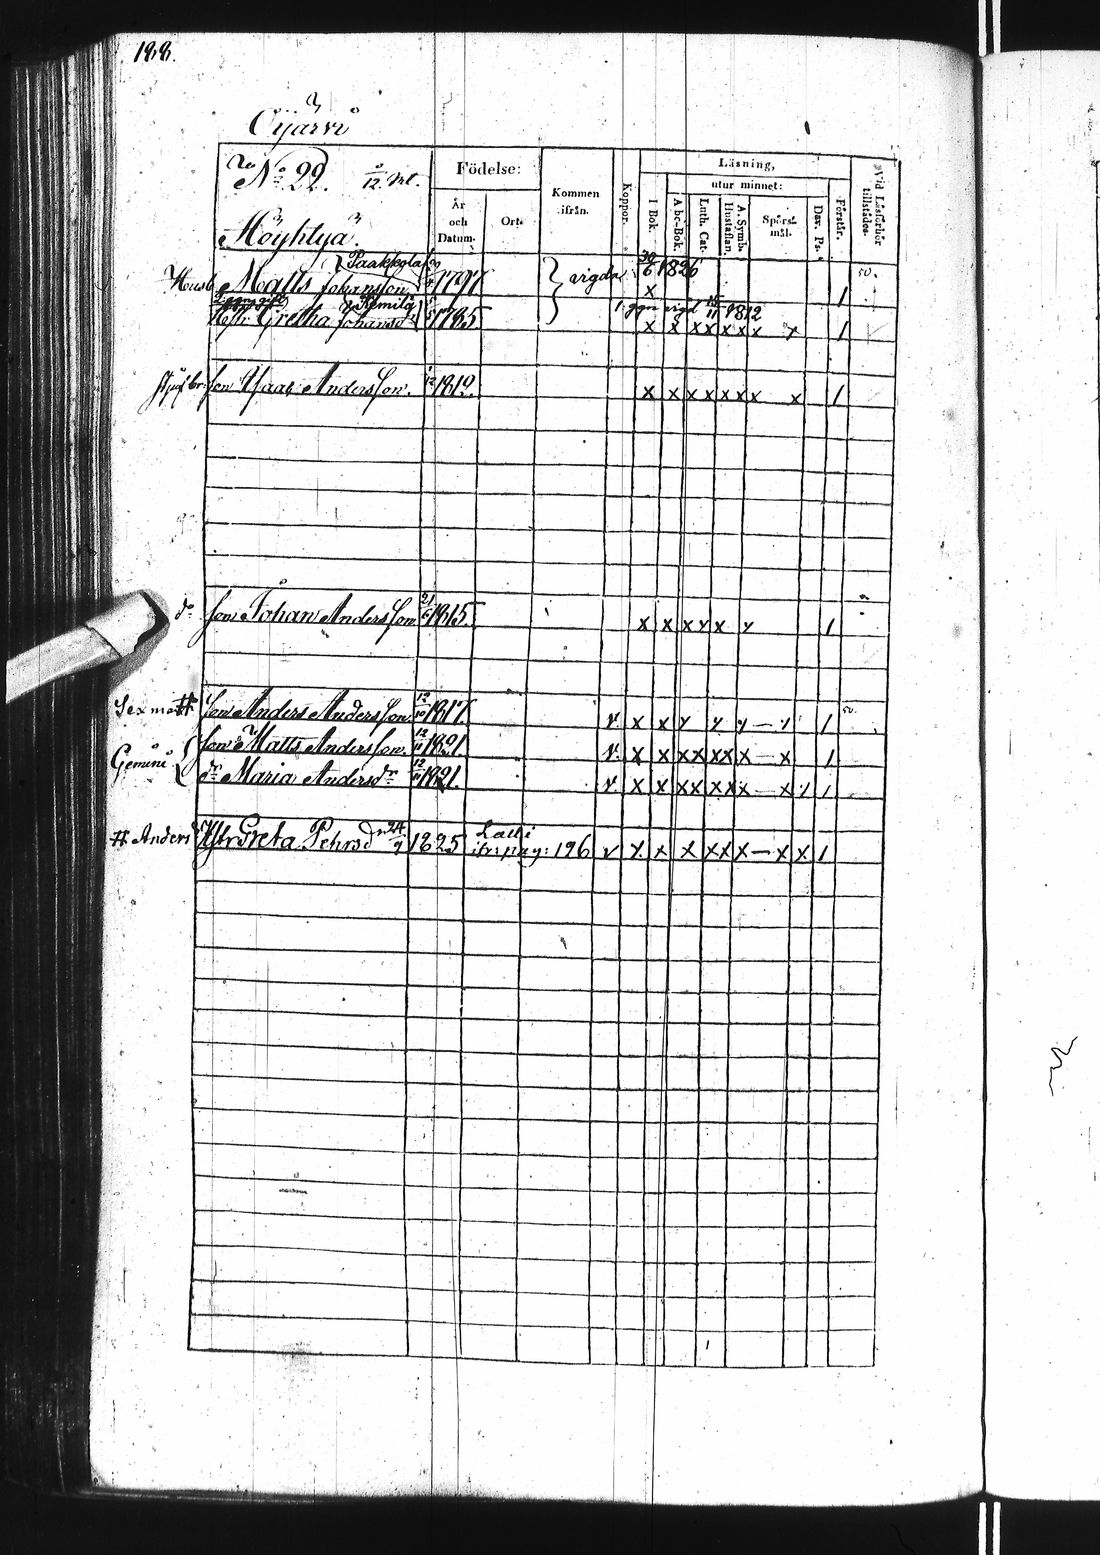 188.
Oijärvi
No 22. 5/12 Mtl.
Födelse:
År och Datum.
Ort.
Kommen ifrån.
Koppor.
Läsning,
utur minnet:
I Bok.
Abc-Bok.
Luth. Cat.
A. Symb. Hustaflan.
Spörsmål.
Dav. Ps.
Förstår.
Vid Läsförhör tillstädes.
Möyhtyä.
Husb Matts Johansson Paakkola 1797 } vigda 30/6 1826 50.
x 1
2 ggn gift Hustr Gretha Johansdr Kemilä 1785 1 ggn vigd 15/11 1812
x x x x x x x x 1
son Isaac Andersson. 1812. x x x x x x x x 1
do son Johan Andersson 21/6 1815. x x x x x x 1
Sexman # son Anders Andersson 12/10 1817. v. x x x x x — x 1 50.
Gemini { son Matts Andersson 12/11 1821 v. x x x x x x x — x 1
dr Maria Andersdr 12/11 1821. v. x x x x x x x — x x 1
# Anders Hstr Greta Pehrsdr 24/9 1825 Lalli ifr. pag: 196 v x x x x x x — x x 1